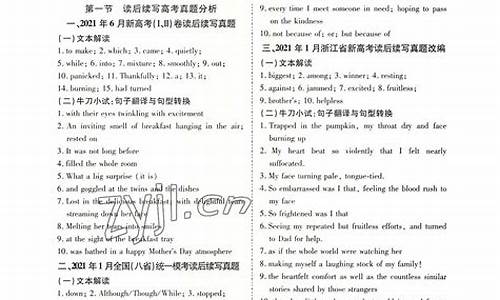 第一节 读后续写高考真题分析
一、2021 年 6 月新高考(Ⅰ,Ⅱ)卷读后续写真题
(一)文本解读
1. to make; 2. which; 3. came; 4. quietly;
5. while; 6. into; 7. mixture; 8. smoothly; 9. out;
10. panicked; 11. Thankfully; 12. a; 13. it;
14. burning; 15. had turned
(二)牛刀小试:句子翻译与句型转换
1. with their eyes twinkling with excitement
2. An inviting smell of breakfast hanging in the air;
rested on
3. It was not long before
4. filled the whole room
5. What a big surprise (it is)
6. and goggled at the twins and the dishes
8. Melting her tears into smiles
9. at the sight of the breakfast tray
10. was bathed in a happy Mother's Day atmosphere
二、2021 年 1 月全国(八省)统一模考读后续写真题
(一)文本解读
1. down; 2. Although/Though/While; 3. stopped;
9. every time I meet someone in need; hoping to pass
on the kindness
10. not because of; or; but because of
三、2021 年 1 月浙江省新高考读后续写真题改编
(一)文本解读
1. biggest; 2. among; 3. winner; 4. resting;
5. against; 6. jammed; 7. excited; 8. fruitless;
9. brother's; 10. helpless
(二)牛刀小试:句子翻译与句型转换
1. Trapped in the pumpkin, my throat dry and face
burning up
2. My heart beat so violently that I felt nearly
suffocated.
3. My face turning pale, tongue-tied.
4. So embarrassed was I that, feeling the blood rush to
my face
5. So frightened was I that
6. Seeing my repeated but fruitless efforts, and turned
to Dad for help.
7. as if the whole world were watching her
8. making myself a laughing stock of my family!
9. the heartfelt comfort as well as the countless similar
stories shared by those strangers